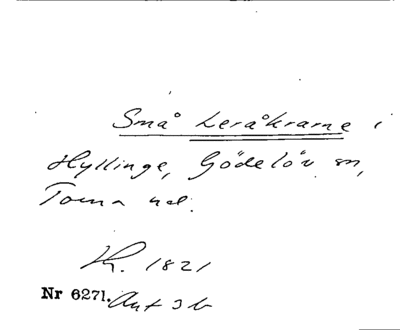 Små Leråkrarne i
Hyllinge, Gödelöv sn,
Torna hd.
K. 1821
Nr 6271.